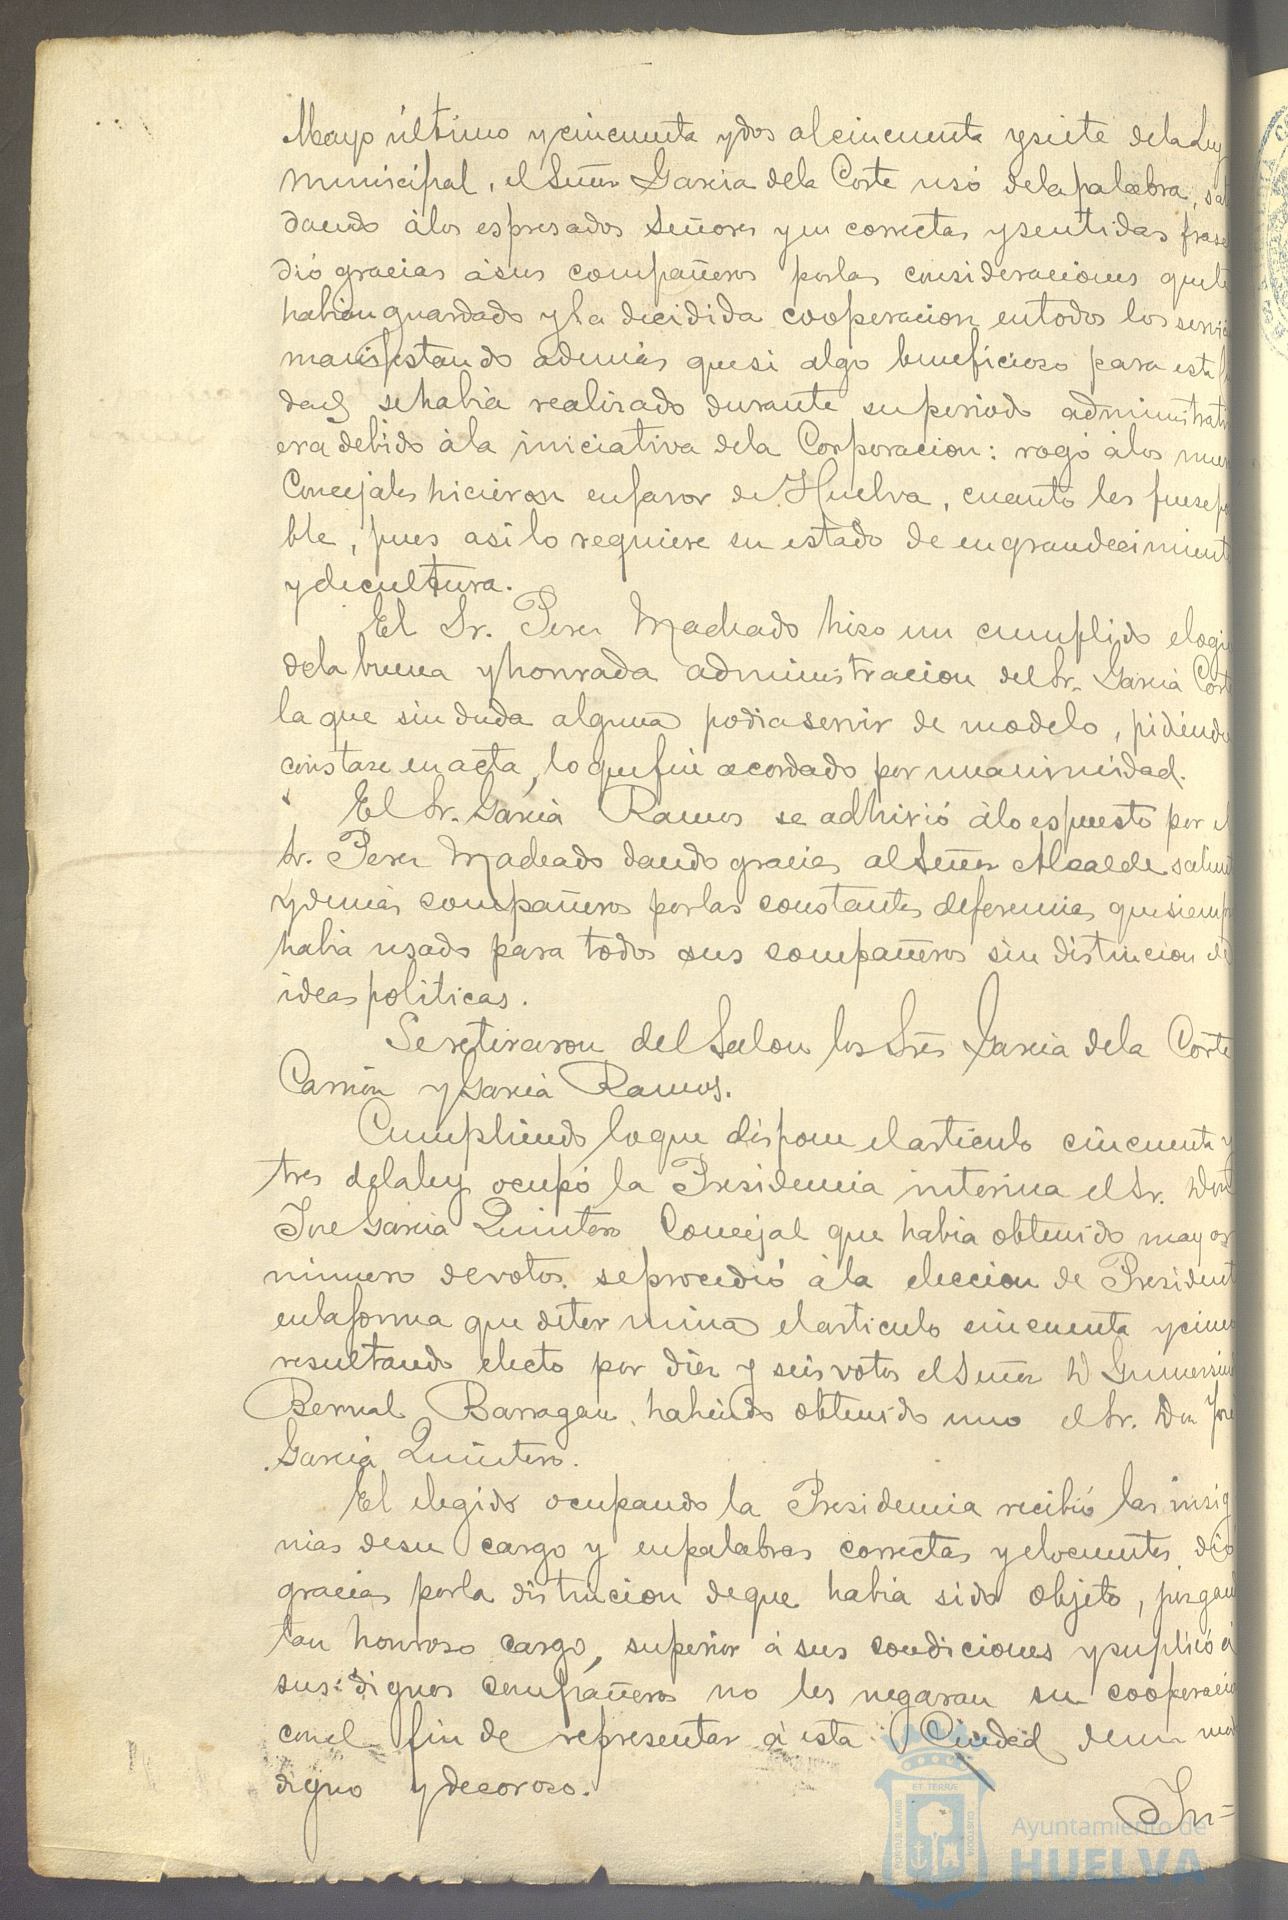 Mayo último y cincuenta y dos al cincuenta y siete de la Ley
Municipal, el Señor Garcia de la Corte usó de la palabra, salu
dando á los espresados Señores y en correctas y sentidas frase
dió gracias á sus compañeros por las consideraciones que le
habian guardado y la decidida cooperacion en todos los servi
manifestando además que si algo beneficioso para esta
dad se habia realizado durante su periodo administrati
era debido á la iniciativa de la Corporacion: rogó á los nue
Concejales hicieran en favor de Huelva, cuanto les fuese po
ble, pues asi lo requiere su estado de engrandecimient
y de cultura.
El Sr. Perez Machado hizo un cumplido elogi
de la buena y honrada administracion del Sr. Garcia Cort
la que sin duda alguna podia servir de modelo, pidiendo
constase en acta, lo que fué acordado por unanimidad.
El Sr. Garcia Ramos se adhirió á lo espuesto por el
Sr. Perez Machado dando gracias al Señor Alcalde salient
y demás compañeros por las constantes deferencias que siemp
habia usado para todos sus compañeros sin distincion de
ideas politicas.
Se retiraron del Salon los Sres Garcia de la Corte
Carrión y Garcia Ramos.
Cumpliendo lo que dispone el articulo cincuenta y
tres de la ley ocupó la Presidencia interina el Sr. Don
Jose Garcia Quintero Concejal que habia obtenido mayor
número de votos. se procedió á la eleccion de President
en la forma que determina el articulo cincuenta y cinco
resultando electo por diez y seis votos el Señor D Gumersin
Bernal Barragan, habiendo obtenido uno el Sr. Don José
Garcia Quintero.
El elegido ocupando la Presidencia recibió las insig
nias de su cargo y en palabras correctas y elocuentes dió
gracias por la distincion de que habia sido objeto, juzgan
tan honroso cargo, superior á sus condiciones y suplicó á
sus dignos compañeros no les negaran su cooperacio
con el fin de representar á esta Ciudad de un mod
digno y decoroso.
In=
ET TERRÆ
PORTUS MARIS
CUSTODIA
Ayuntamiento de
HUELVA